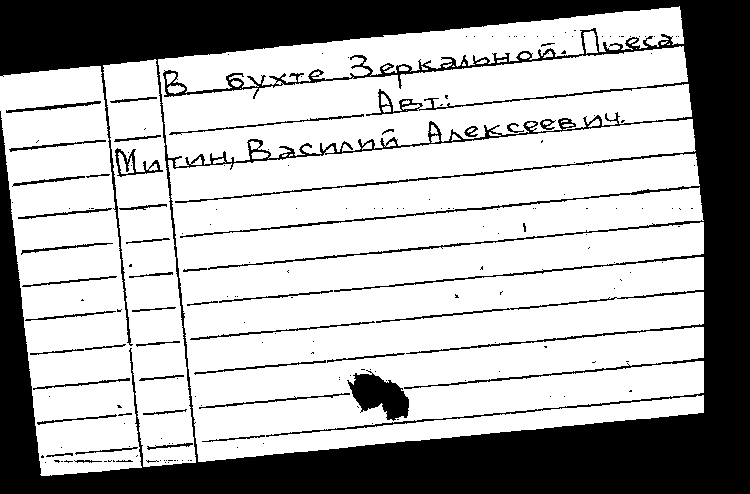 В бухте Зеркальной. Пьеса
Авт.:
Митин, Василий Алексеевич.